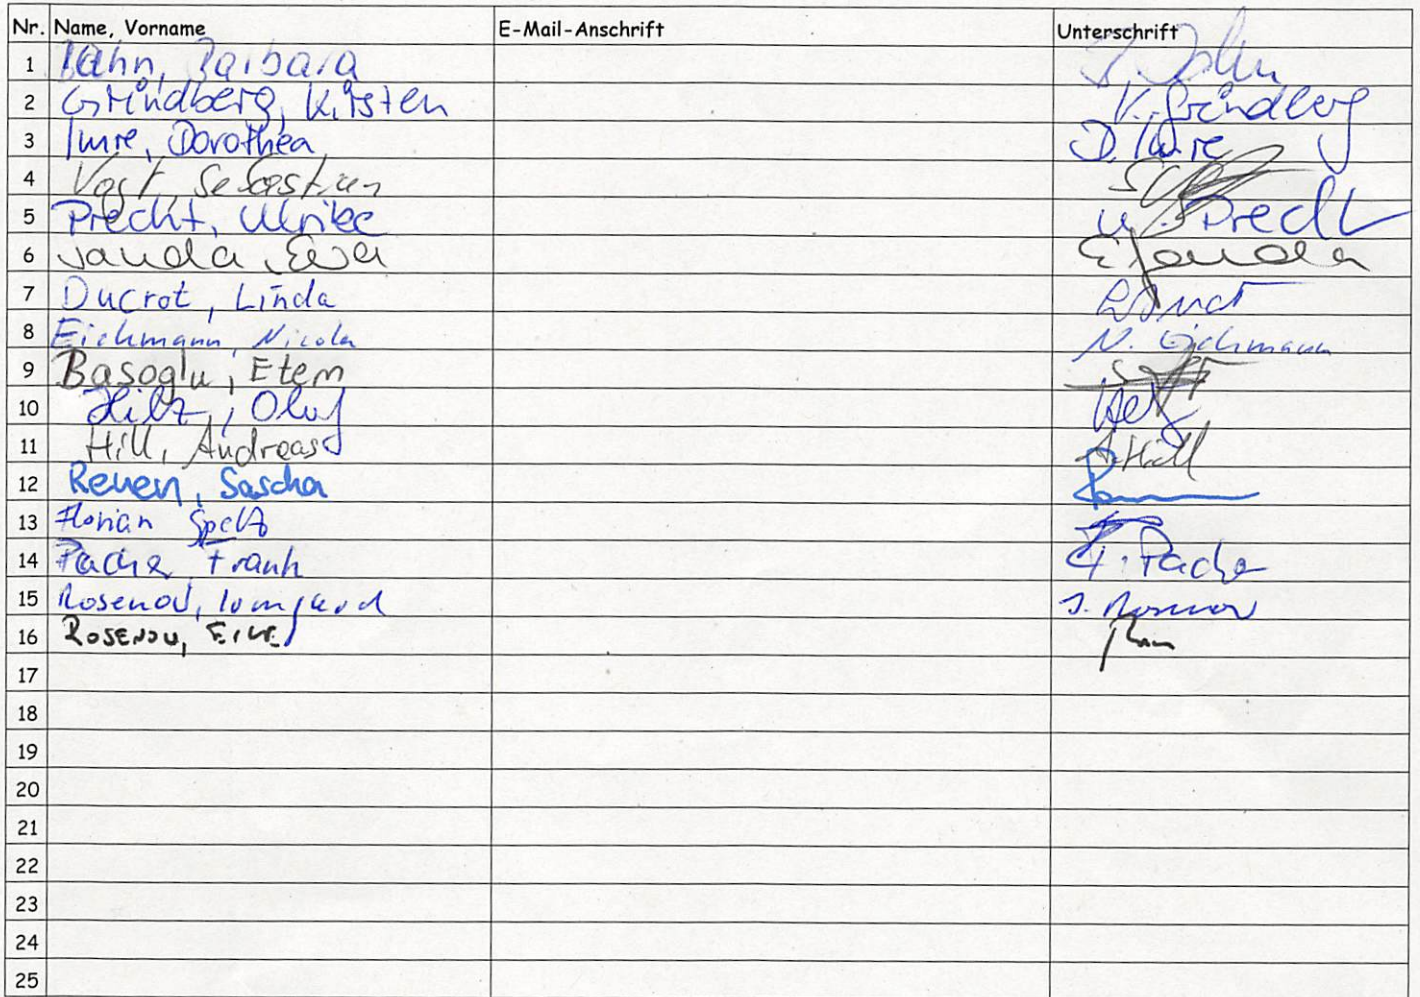 Nr. Name, Vorname E-Mail-Anschrift Unterschrift
1 Barbara
2 Grindberg, Kirsten K. Grindberg
3 Imre, Dorothea D. Imre
4 Vogt, Sebastian
5 Precht, Ulrike U. Precht
6 Janda, Eva E. Janda
7 Ducrot, Linda
8 Eichmann, Nicola N. Eichmann
9 Basoglu, Etem
10 Hilz, Olaf
11 Hill, Andreas A. Hill
12 Sascha
13 Florian
14 Frank
15 Rosenow, Irmgard I. Rosenow
16 Rosenow, Eike
17
18
19
20
21
22
23
24
25